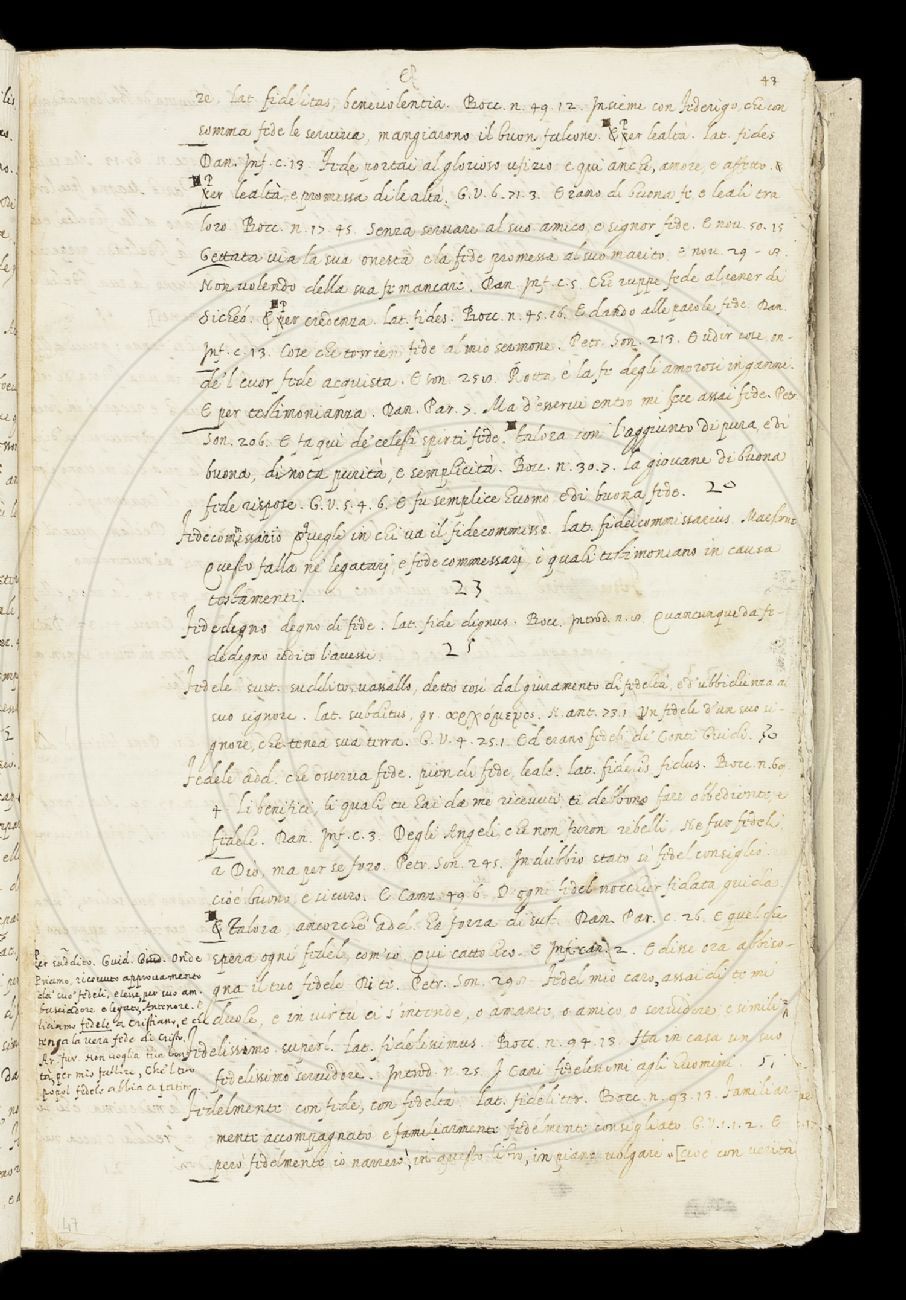 47
re. Lat. fidelitas, benevolentia. Bocc. n. 49. 12. Insieme con Federigo, che con
somma fede le serviva, mangiarono il buon falcone. E Per lealtà. Lat. fides
Dan. Inf. c. 13. Fede portai al glorioso ufizio e qui anche, amore, e affetto. E
Per lealtà, e promessa di lealtà. G. V. 6. 71. 3. Erano di buona fe, e leali tra
loro. Bocc. n. 17. 45. Senza servare al suo amico, e signor fede. E nov. 50. 15
Gettata via la sua onestà e la fede promessa al suo marito. E nov. 29
Non volendo della sua fe mancare. Dan. Inf. c. 5. Che ruppe fede al cener di
Sicheo. E Per credenza. Lat. fides. Bocc. n. 45. 16. E dando alle parole fede. Dan.
Inf. c. 13. Cose che torrien fede al mio sermone. Petr. Son. 213. E udir cose on-
de'l cuor fede acquista. E son. Rotta, è la fe degli amorosi inganni.
E per testimonianza. Dan. Par. 7. Ma d'esservi entro mi fece assai fede. Petr
Son. 206. E fa qui de' celesti spirti fede. talora con l'aggiunto di pura, e di
buona, dinota purità, e semplicità. Bocc. n. 30. 7. La giovane di buona
fede rispose. G. V. 5. 4. 6. E fu semplice huomo e di buona fede. 20
Fidecommessario quegli in chi va il fidecommesso. Lat. fideicommissarius. Maestruz
Questo falla ne' legatarj, e fidecommessarj, i quali testimoniano in causa
testamenti. 23
Fidedegno degno di fede. Lat. fide dignus. Bocc. Introd. n. Quantunque da fe-
dedegno udito l'avessi. 25
Fedele sust. suddito, vassallo, detto così dal giuramento di fedeltà, e d'ubbidienza al
suo signore. Lat. subditus, gr. ἀρχόμενος. N. ant. 73. 1. Un fedele d'un suo si-
gnore, che tenea sua terra. G. V. 4. 25. 1. Ed erano fedeli de' Conti Guidi. 30
Fedele add. che osserva fede. pien di fede, leale. Lat. fidelis fidus. Bocc. n. 60
4 Li benifici, li quali tu hai da me ricevuti, ti debbono fare obbediente, e
fedele. Dan. Inf. c. 3. Degli Angeli, che non furon ribelli, Ne fur fedeli
a Dio, ma per se foro. Petr. Son. 245. In dubbio stato sì fedel consiglio
cioè buono, e sicuro. E Canz. 49. 6. D'ogni fedel nocchier fidata guida.
E Talora, ancorchè add. ha forza di sust. Dan. Par. c. 26. E quel che
spera ogni fedele, com'io Qui cattolico. E Inf. can. 2. E dine ora abbiso-
gna il tuo fedele Di te. Petr. Son. Fedel mio caro, assai di te mi
duole, e in vertu ci s'intende, o amante, o amico, o servidore, e simili
Fidelissimo superl. Lat. fidelissimus. Bocc. n. 94. 13. Sta in casa un suo
fedelissimo servidore. Introd. n. 25. I Cani fedelissimi agli huomini. 5,
Fidelmente con fede, con fedeltà. Lat. fideliter. Bocc. n. 93. 13. Familiar-
mente accompagnato e familiarmente fedelmente consigliato. G. V. 1. 1. 2. E
però fedelmente io narrerò in questo libro, in piano volgare. [cioè con verità
Per suddito. Guid. Giud. Onde
Priamo, ricevuto approvamento
da' suoi fedeli, elesse, per suo am-
basciadore e legato, Antenore. E
dicimmo fedele a Cristiano, e chi
tenga la vera fede di Cristo,
Ar. fur. Non voglia tua bon-
tà, per mio fallire, Che'l tuo
popol fedele abbia a patire.
47